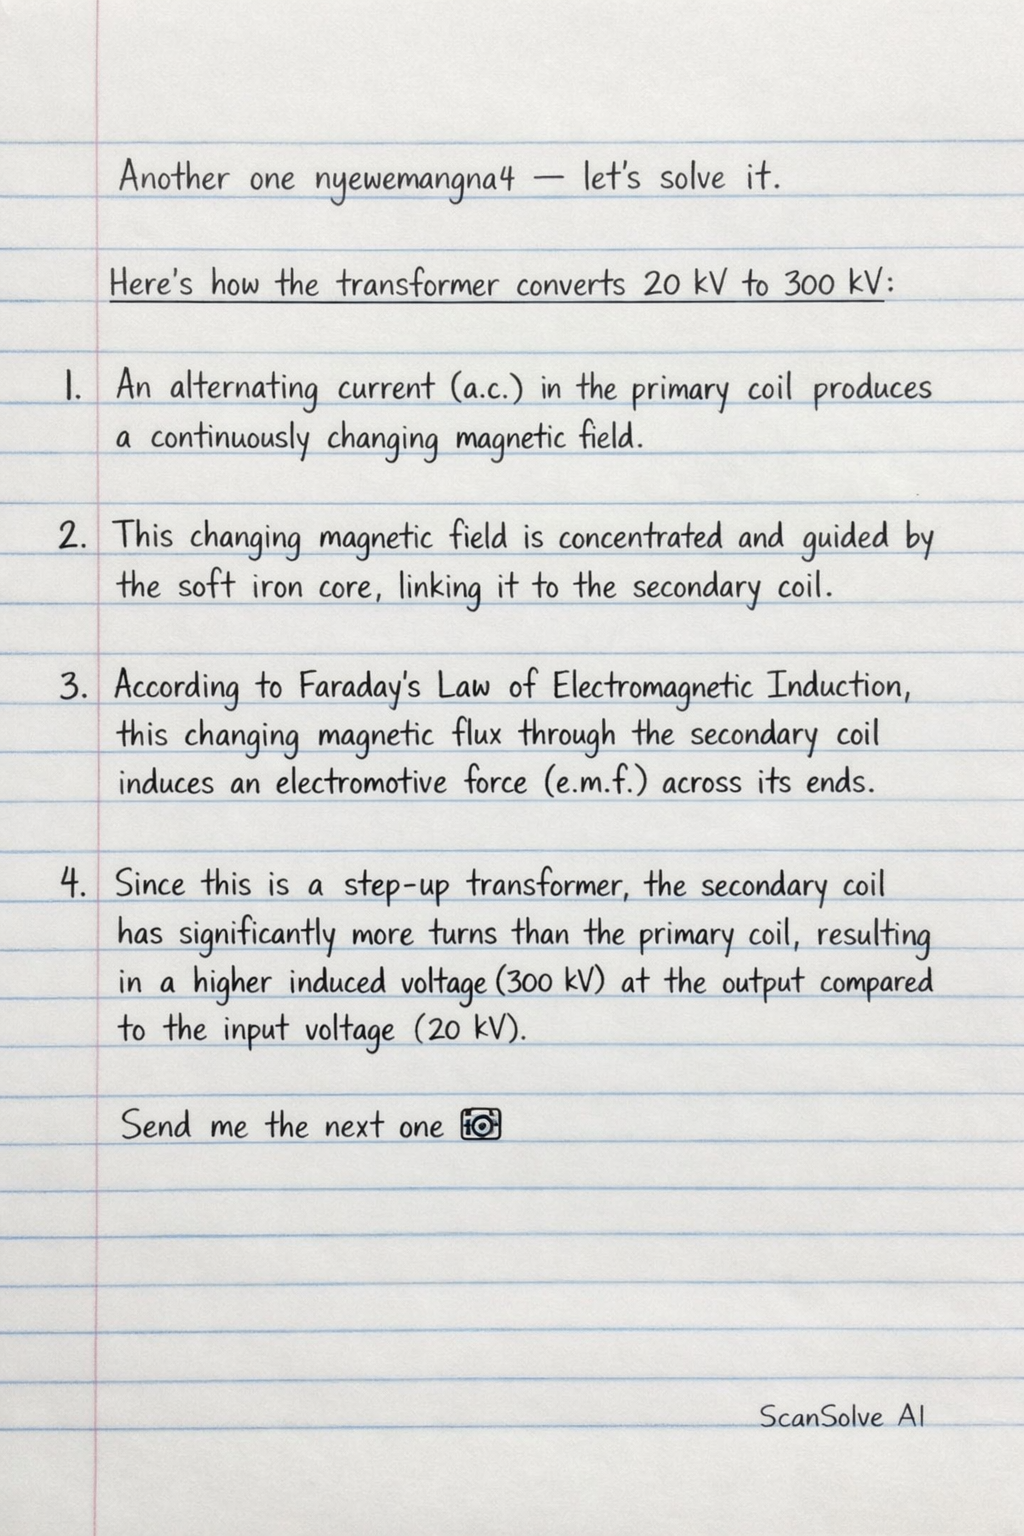 Another one nyewemangna4 — let's solve it.
Here's how the transformer converts 20 kV to 300 kV:
1. An alternating current (a.c.) in the primary coil produces
a continuously changing magnetic field.
2. This changing magnetic field is concentrated and guided by
the soft iron core, linking it to the secondary coil.
3. According to Faraday's Law of Electromagnetic Induction,
this changing magnetic flux through the secondary coil
induces an electromotive force (e.m.f.) across its ends.
4. Since this is a step-up transformer, the secondary coil
has significantly more turns than the primary coil, resulting
in a higher induced voltage (300 kV) at the output compared
to the input voltage (20 kV).
Send me the next one 📷
ScanSolve AI